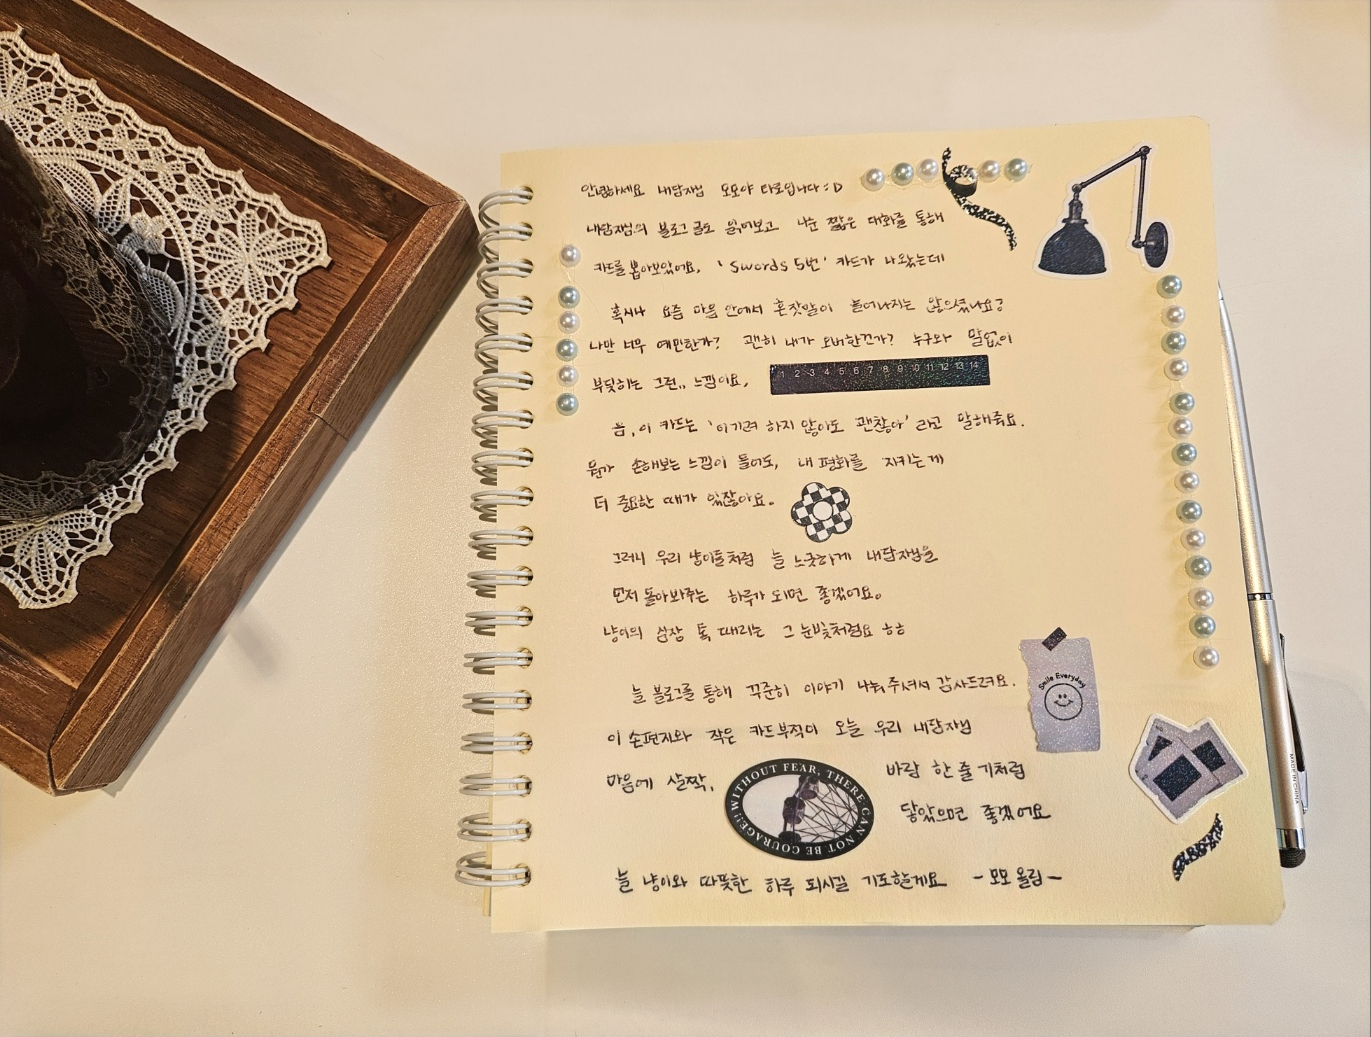 안녕하세요 내담자님 모모야 타로입니다 :D
내담자님의 블로그 글도 읽어보고 나눈 짧은 대화를 통해
카드를 뽑아보았어요, 'Swords 5번' 카드가 나왔는데
혹시나 요즘 마음 안에서 혼잣말이 늘어나지는 않으셨나요?
나만 너무 예민한가? 괜히 내가 오버한건가? 누구와 말없이
부딪히는 그런.. 느낌이요,
1 2 3 4 5 6 7 8 9 10 11 12 13 14
음, 이 카드는 '이기려 하지 않아도 괜찮아' 라고 말해줘요.
뭔가 손해보는 느낌이 들어도, 내 평화를 지키는게
더 중요한 때가 있잖아요.
그러니 우리 냥이들처럼 늘 느긋하게 내담자님을
먼저 돌아봐주는 하루가 되면 좋겠어요.
냥이의 심장 톡 때리는 그 눈빛처럼요 ㅎㅎ
늘 블로그를 통해 꾸준히 이야기 나눠주셔서 감사드려요.
Smile Everyday
이 손편지와 작은 카드부적이 오늘 우리 내담자님
마음에 살짝, 바람 한 줄기처럼
WITHOUT FEAR, THERE CAN NOT BE COURAGE!!
닿았으면 좋겠어요
늘 냥이와 따뜻한 하루 되시길 기도할게요 -모모 올림-
MADE IN CHINA